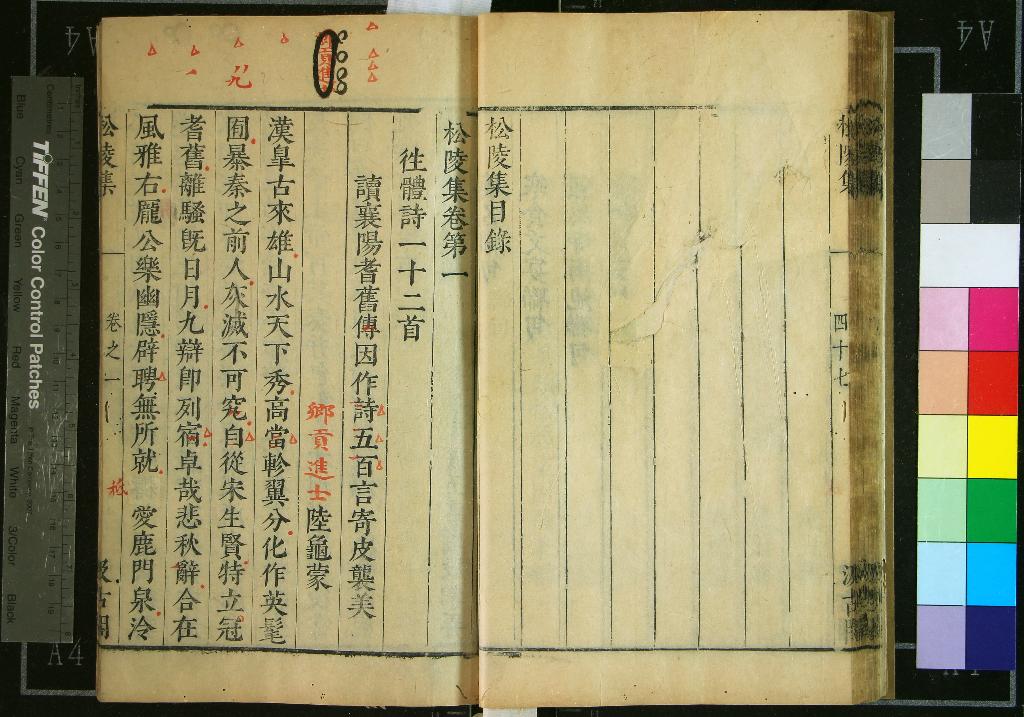 松陵集目錄
四十七
松陵集卷第一
徃體詩一十二首
讀襄陽耆舊傳因作詩五百言寄皮襲美
鄉貢進士陸龜蒙
漢皐古來雄山水天下秀高當軫翼分化作英髦
囿暴秦之前人灰滅不可究自從宋生賢特立冠
耆舊離騷旣日月九辯卽列宿卓哉悲秋辭合在
風雅右龎公樂幽隱辟聘無所就愛鹿門泉泠
松陵集
卷之一
A4
A4
A4
TIFFEN Color Control Patches
Blue
Cyan
Green
Yellow
Red
Magenta
White
3/Color
Black